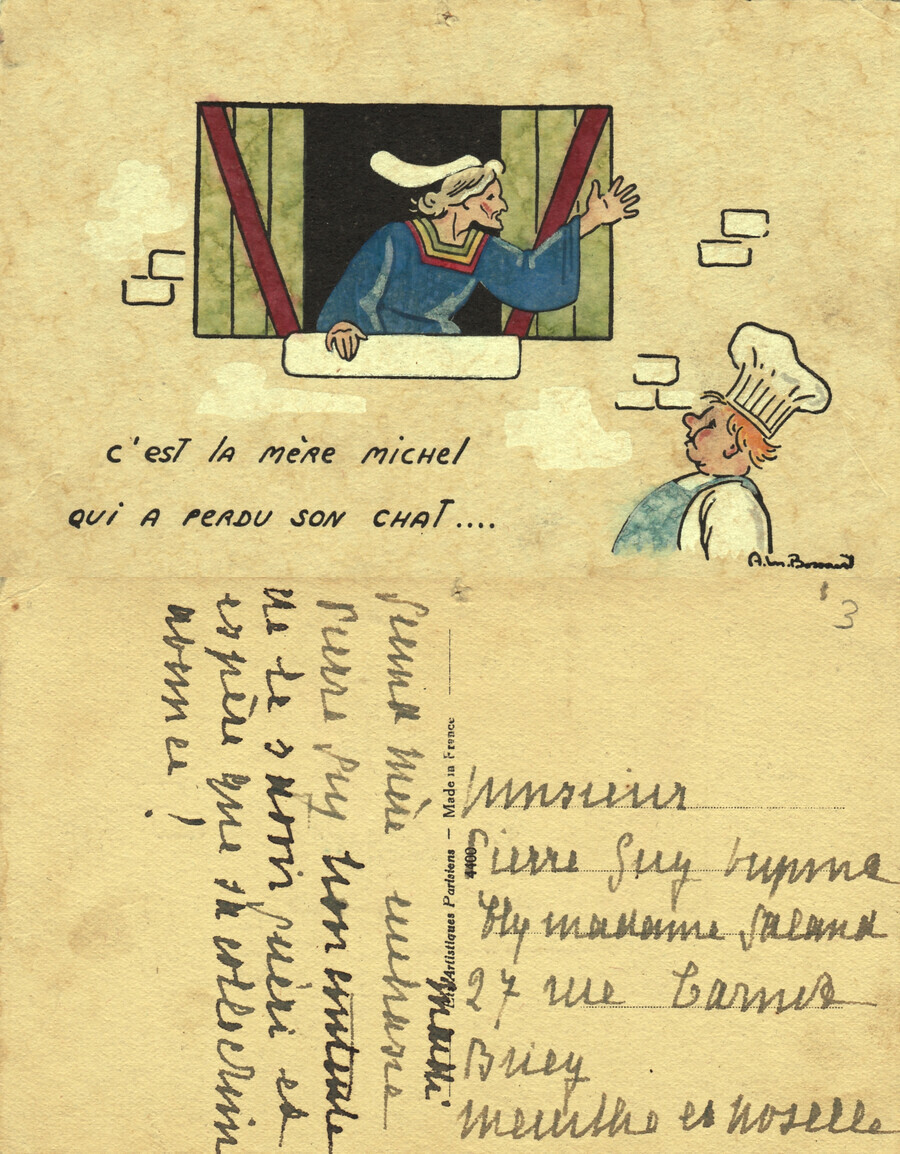 c'est la mère michel
qui a perdu son chat....
3
Grand mère embrasse
Pierre Guy bien contente
de te savoir guéri et
espère que sa collection
avance !
Ets Artistiques Parisiens — Made in France
4400
Monsieur
Pierre Guy
chez madame Galand
27 rue Carnot
Briey
Meurthe et Moselle